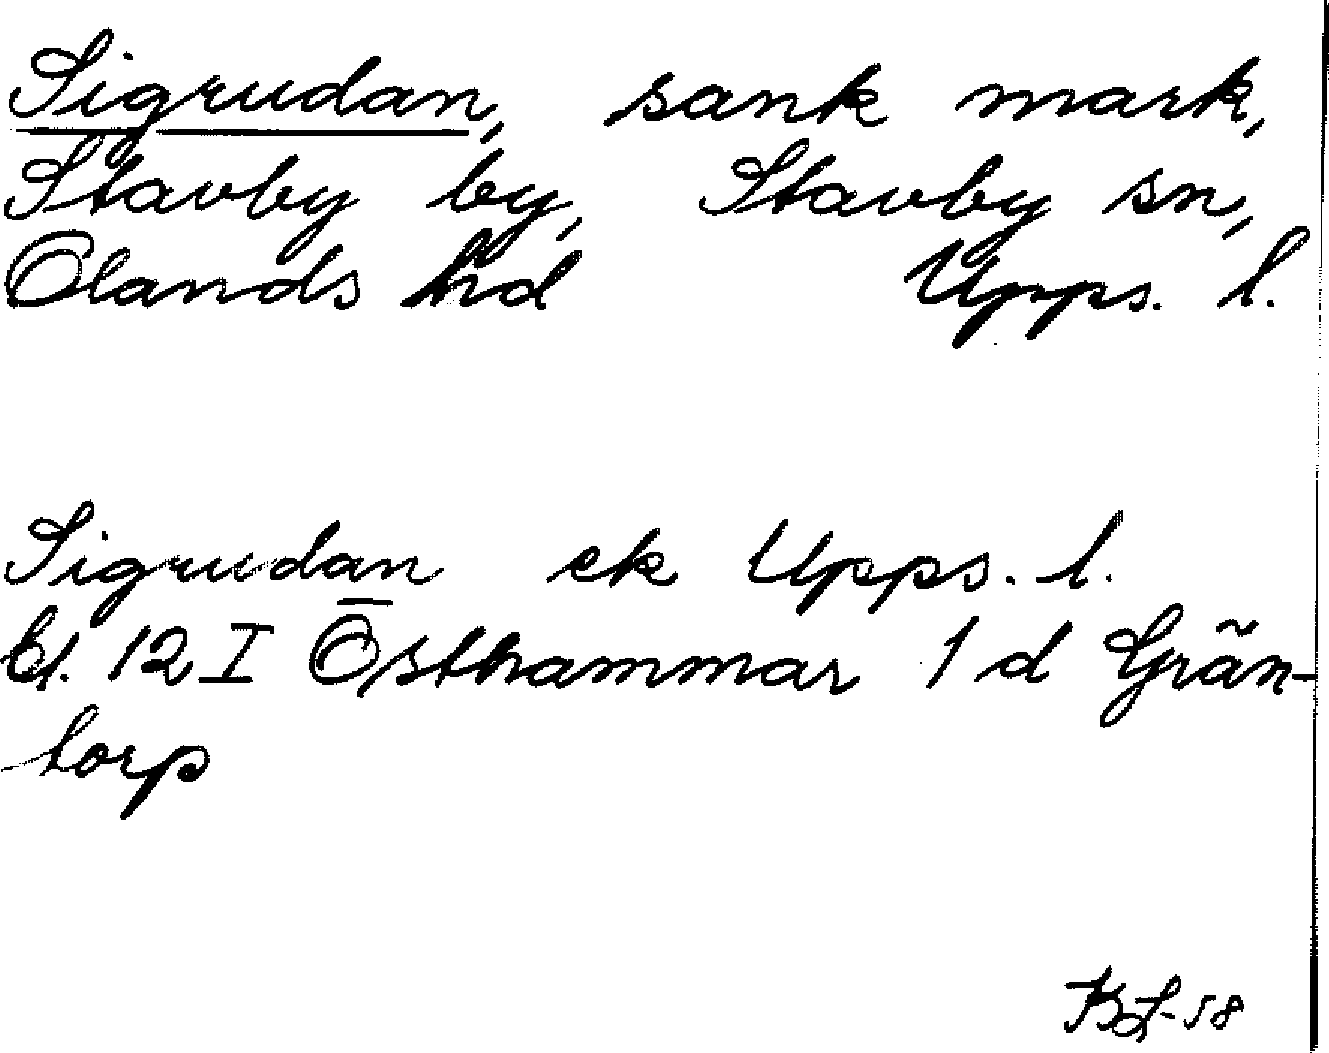 Sigrudan, sank mark,
Stavby by, Stavby sn,
Olands hd Upps. l.
Sigrudan ek Upps. l.
bl. 12 I Östhammar 1 d Grän-
torp
KL-58